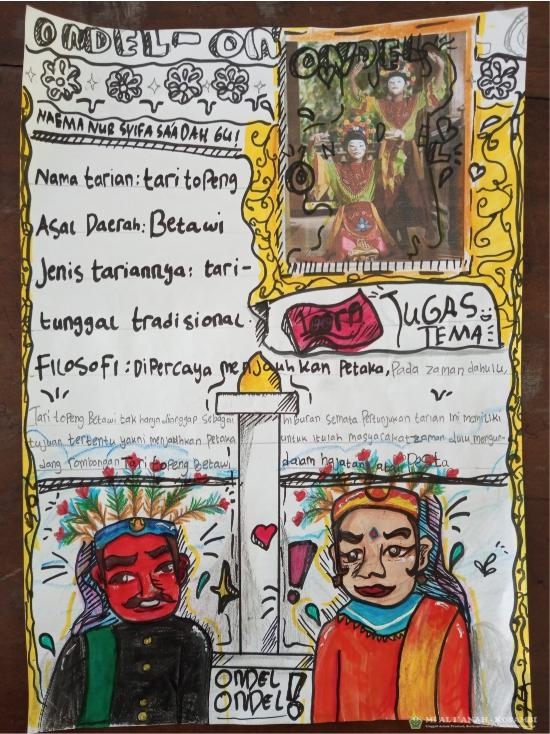 ONDEL-ONDEL
NAEMA NUR SYIFA SAADAH 6U1
Nama tarian: tari toPeng
Asal Daerah: Betawi
Jenis tariannya: tari-
tunggal tradisional.
TUGAS
TEMA
FILOSOFI: DiPercaya menjauhkan Petaka, Pada zaman dahulu,
Tari toPeng Betawi tak hanya dianggap sebagai hiburan semata Pertunjukan tarian Ini memiliki
tujuan tertentu yakni menjauhkan Petaka untuk itulah masyarakat zaman dulu mengun-
dang rombongan Tari toPeng Betawi dalam hajatan atau Pesta
ONDEL
ONDEL!